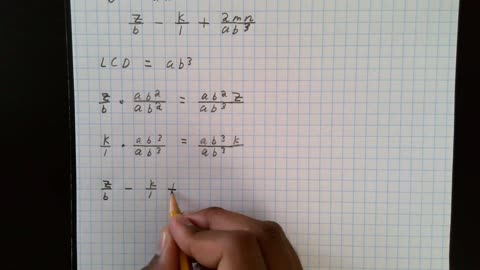 z/b - k/1 + 2mn/ab³
LCD = ab³
z/b · ab²/ab² = ab²z/ab³
k/1 · ab³/ab³ = ab³k/ab³
z/b - k/1 +